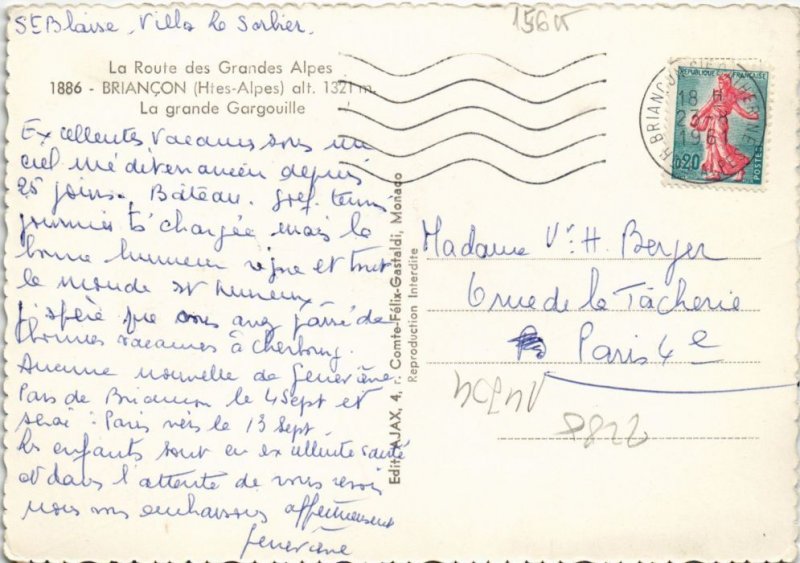 St Blaise. Villa Le Sorbier.
156π
La Route des Grandes Alpes
1886 - BRIANÇON (Htes-Alpes) alt. 1321 m.
La grande Gargouille
Excellentes vacances sous un
ciel méditerranéen depuis
25 jours. Bateau. golf. tennis
journées ts chargées mais la
bonne humeur règne et tout
le monde est heureux
J'espère que vous avez passé de
bonnes vacances à Cherbourg.
Aucune nouvelle de Geneviève
Pars de Briançon le 4 Sept et
serai : Paris vers le 13 Sept.
Les enfants sont en excellente santé
et dans l'attente de vous revoir
nous vous embrassons affectueusement
Geneviève
Edit. AJAX, 4, r. Comte-Félix-Gastaldi, Monaco
Reproduction Interdite
BRIANÇON
18 H
196
REPUBLIQUE FRANÇAISE
0,20
POSTES
Madame Vve H. Berger
6 rue de la Tâcherie
Paris 4e